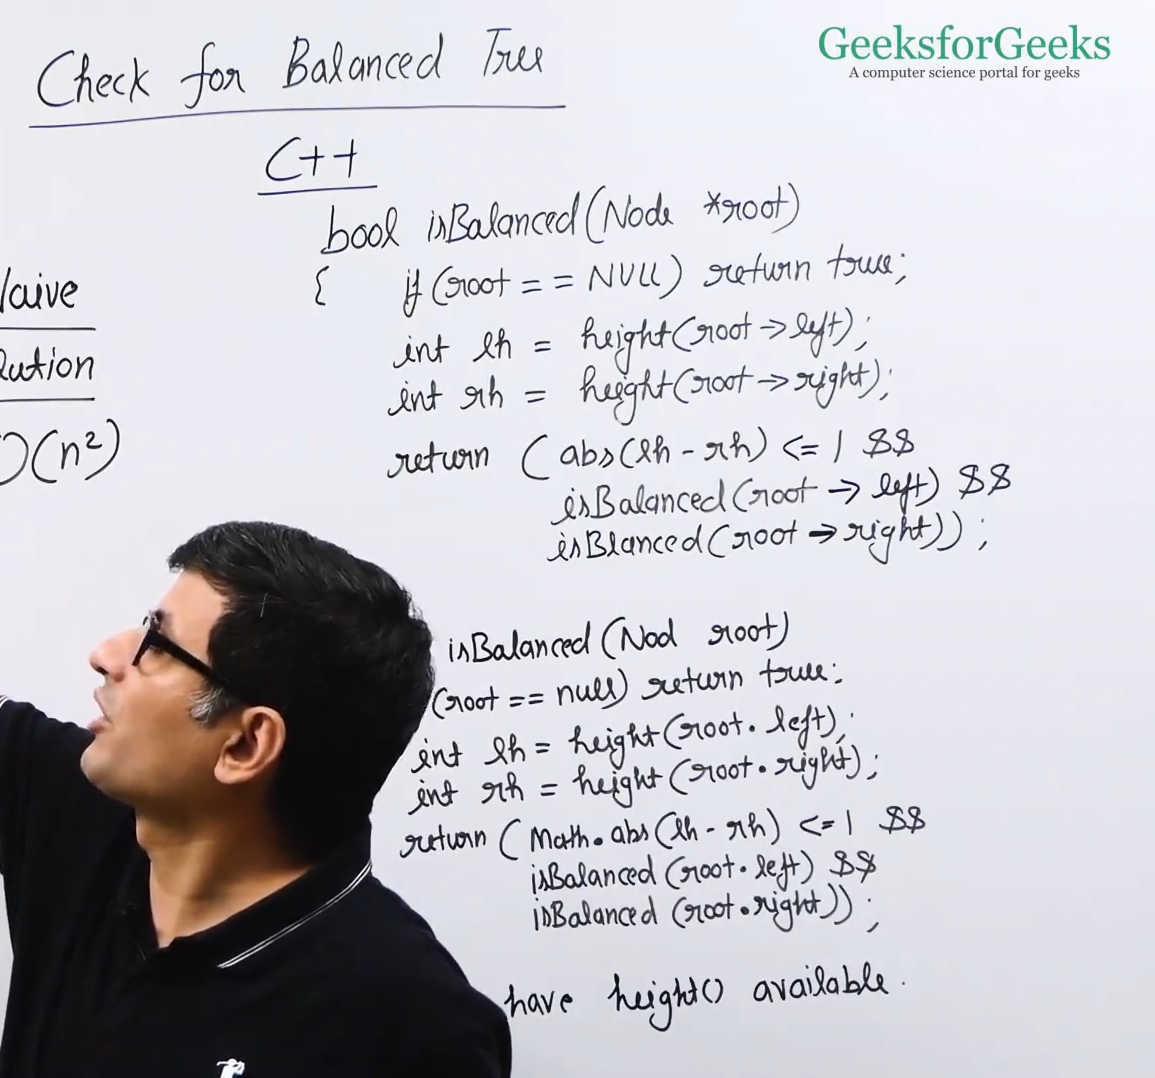 GeeksforGeeks
A computer science portal for geeks
Check for Balanced Tree
C++
bool isBalanced(Node *root)
{ if (root == NULL) return true;
int lh = height(root->left);
int rh = height(root->right);
return (abs(lh - rh) <= 1 &&
isBalanced(root -> left) &&
isBlanced(root -> right));
laive
lution
O(n²)
isBalanced(Nod root)
(root == null) return true;
int lh = height(root.left);
int rh = height(root.right);
return (Math.abs(lh - rh) <= 1 &&
isBalanced (root.left) &&
isBalanced (root.right));
have height() available.